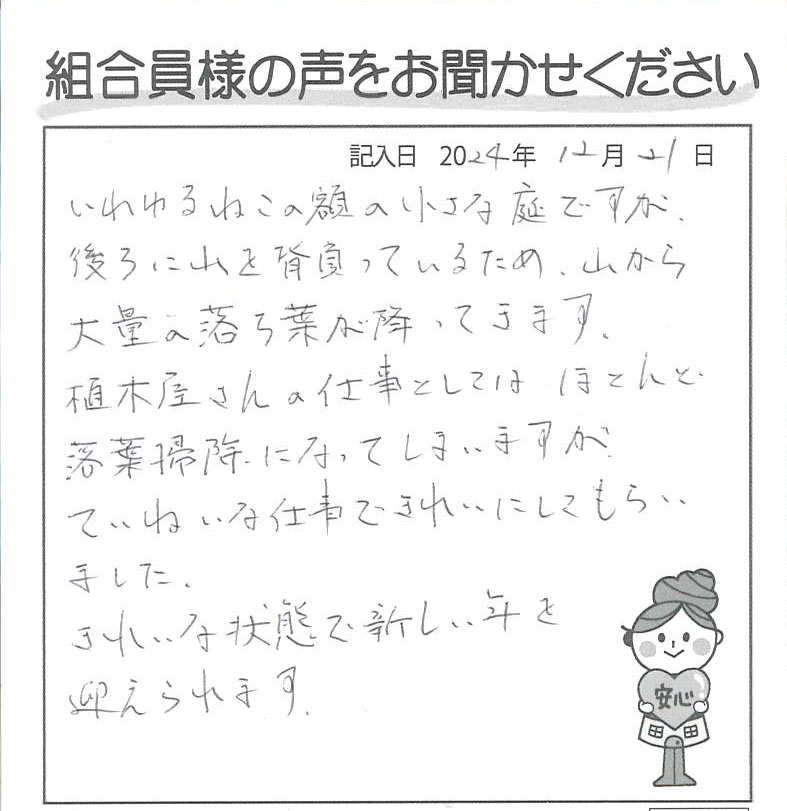 組合員様の声をお聞かせください
記入日 2024年 12月21日
いわゆるねこの額の小さな庭ですが、
後ろに山を背負っているため、山から
大量の落ち葉が降ってきます。
植木屋さんの仕事としては ほとんど
落葉掃除になってしまいますが
ていねいな仕事できれいにしてもらい
ました。
きれいな状態で新しい年を
迎えられます。
安心